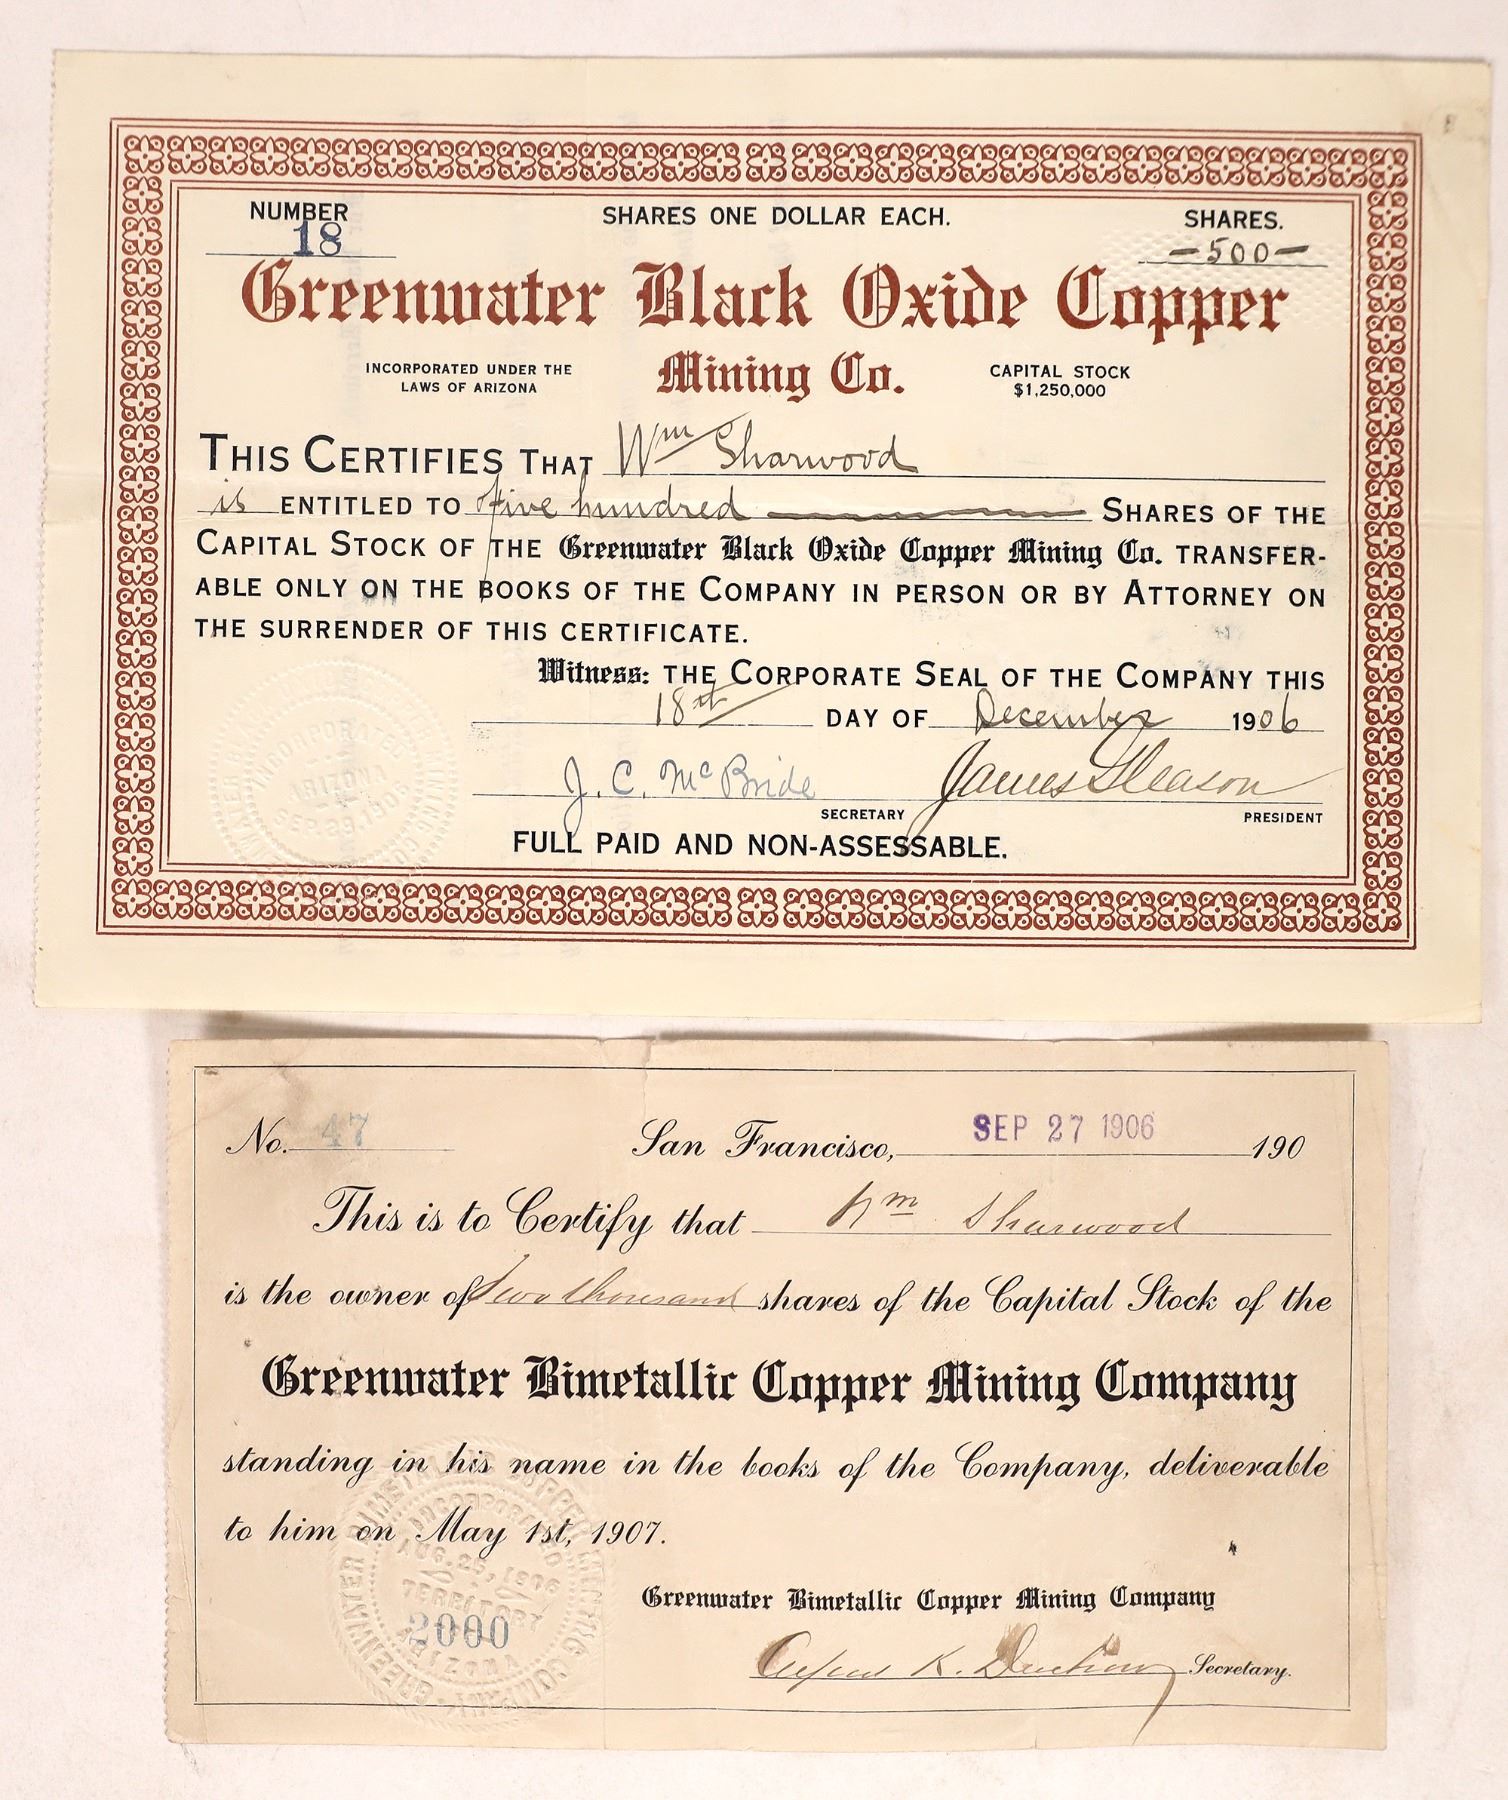 NUMBER SHARES ONE DOLLAR EACH. SHARES.
18 -500-
Greenwater Black Oxide Copper
INCORPORATED UNDER THE Mining Co. CAPITAL STOCK
LAWS OF ARIZONA $1,250,000
THIS CERTIFIES THAT Wm Sharwood
is ENTITLED TO five hundred SHARES OF THE
CAPITAL STOCK OF THE Greenwater Black Oxide Copper Mining Co. TRANSFER-
ABLE ONLY ON THE BOOKS OF THE COMPANY IN PERSON OR BY ATTORNEY ON
THE SURRENDER OF THIS CERTIFICATE.
Witness: THE CORPORATE SEAL OF THE COMPANY THIS
18th DAY OF December 1906
J. C. McBride James Gleason
SECRETARY PRESIDENT
FULL PAID AND NON-ASSESSABLE.
INCORPORATED
ARIZONA
No. 47 San Francisco, SEP 27 1906 190
This is to Certify that Wm Sharwood
is the owner of Two thousand shares of the Capital Stock of the
Greenwater Bimetallic Copper Mining Company
standing in his name in the books of the Company, deliverable
to him on May 1st, 1907.
Greenwater Bimetallic Copper Mining Company
Secretary.
GREENWATER BIMETALLIC COPPER MINING COMPANY
INCORPORATED
AUG. 25, 1906
TERRITORY
2000
ARIZONA